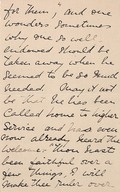 for Them, and one
wonders sometimes
why one so well
endowed should be
taken away when he
seemed to be so much
needed. May it not
be that he has been
called home to higher
service and has even
now already heard the
welcome "Thou hast
been faithful over a
few things, I will
make thee ruler over